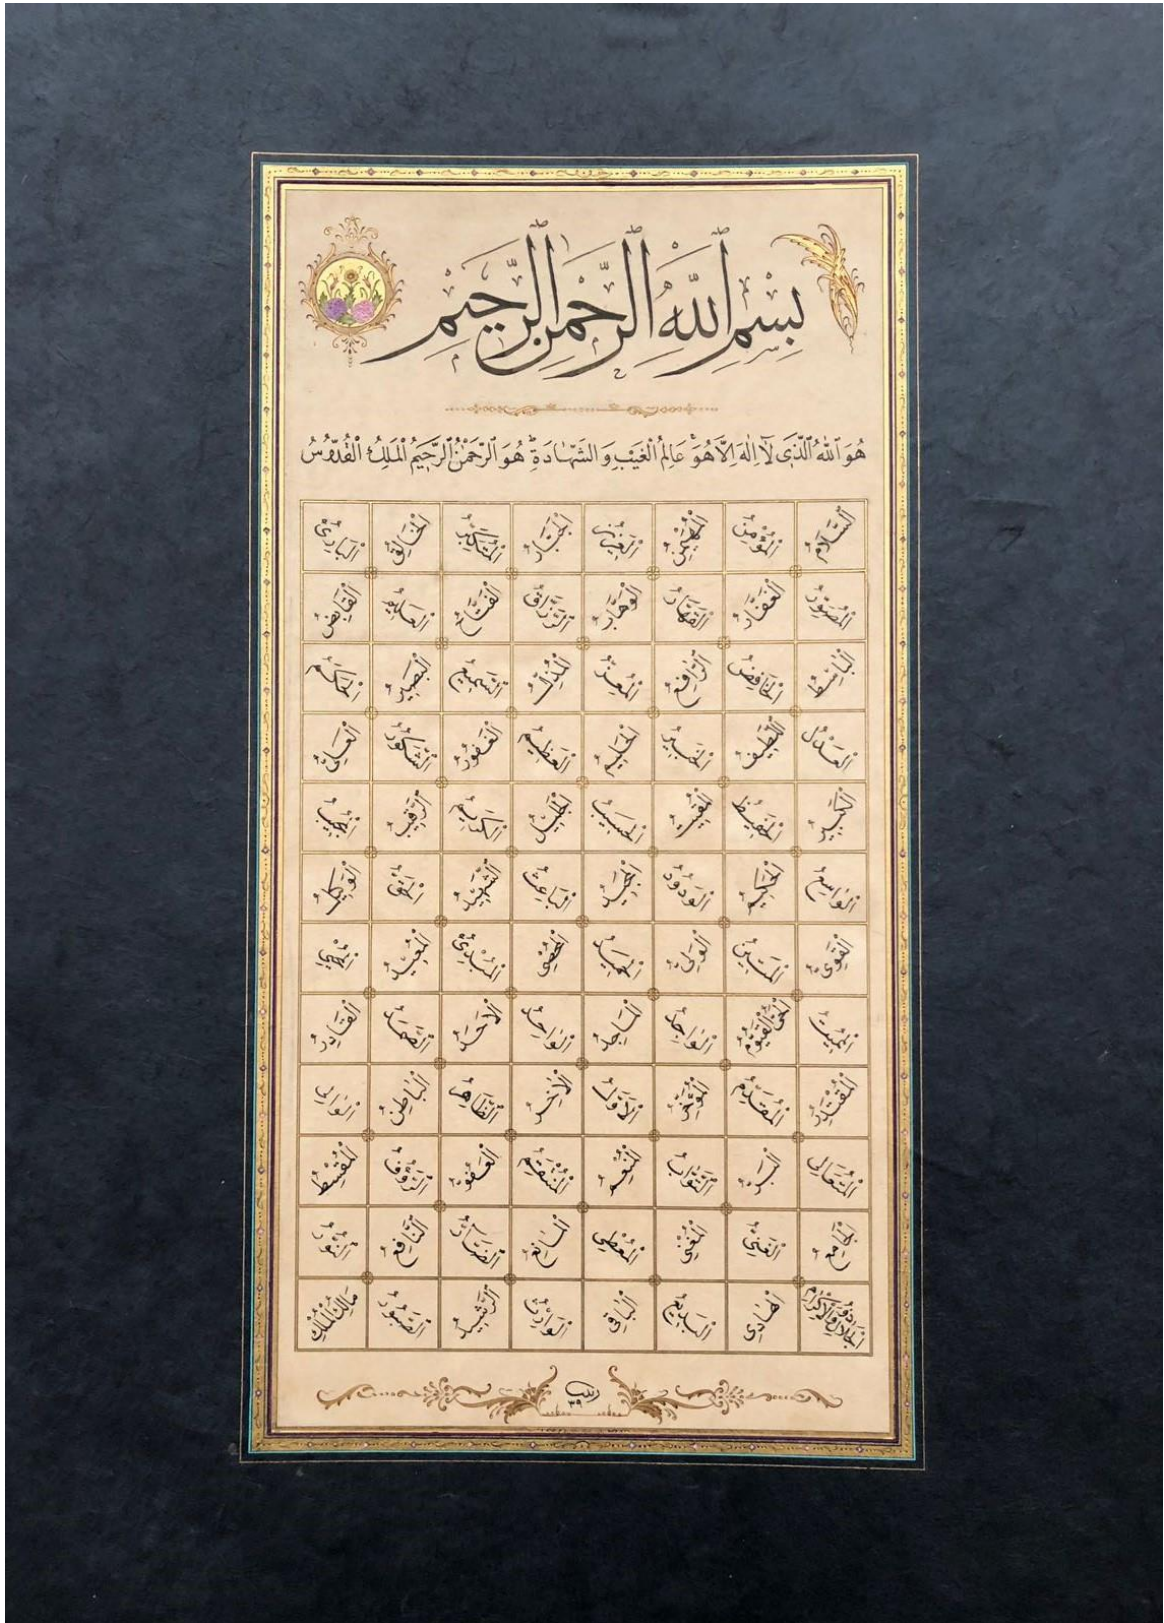 بِسْمِ اللّٰهِ الرَّحْمٰنِ الرَّحِيمِ
هُوَ اللّٰهُ الَّذِي لَا اِلٰهَ اِلَّا هُوَ عَالِمُ الْغَيْبِ وَالشَّهَادَةِ هُوَ الرَّحْمٰنُ الرَّحِيمُ الْمَلِكُ الْقُدُّوسُ
السَّلَامُ الْمُؤْمِنُ الْمُهَيْمِنُ الْعَزِيزُ الْجَبَّارُ الْمُتَكَبِّرُ الْخَالِقُ الْبَارِئُ
الْمُصَوِّرُ الْغَفَّارُ الْقَهَّارُ الْوَهَّابُ الرَّزَّاقُ الْفَتَّاحُ الْعَلِيمُ الْقَابِضُ
الْبَاسِطُ الْخَافِضُ الرَّافِعُ الْمُعِزُّ الْمُذِلُّ السَّمِيعُ الْبَصِيرُ الْحَكَمُ
الْعَدْلُ اللَّطِيفُ الْخَبِيرُ الْحَلِيمُ الْعَظِيمُ الْغَفُورُ الشَّكُورُ الْعَلِيُّ
الْكَبِيرُ الْحَفِيظُ الْمُقِيتُ الْحَسِيبُ الْجَلِيلُ الْكَرِيمُ الرَّقِيبُ الْمُجِيبُ
الْوَاسِعُ الْحَكِيمُ الْوَدُودُ الْمَجِيدُ الْبَاعِثُ الشَّهِيدُ الْحَقُّ الْوَكِيلُ
الْقَوِيُّ الْمَتِينُ الْوَلِيُّ الْحَمِيدُ الْمُحْصِي الْمُبْدِئُ الْمُعِيدُ الْمُحْيِي
الْمُمِيتُ الْحَيُّ الْقَيُّومُ الْوَاجِدُ الْمَاجِدُ الْوَاحِدُ الْاَحَدُ الصَّمَدُ الْقَادِرُ
الْمُقْتَدِرُ الْمُقَدِّمُ الْمُؤَخِّرُ الْاَوَّلُ الْاٰخِرُ الظَّاهِرُ الْبَاطِنُ الْوَالِي
الْمُتَعَالِي الْبَرُّ التَّوَّابُ الْمُنْعِمُ الْمُنْتَقِمُ الْعَفُوُّ الرَّؤُفُ الْمُقْسِطُ
الْجَامِعُ الْغَنِيُّ الْمُغْنِي الْمُعْطِي الْمَانِعُ الضَّارُّ النَّافِعُ النُّورُ
ذُو الْجَلَالِ وَالْاِكْرَامِ الْهَادِي الْبَدِيعُ الْبَاقِي الْوَارِثُ الرَّشِيدُ الصَّبُورُ مَالِكُ الْمُلْكِ